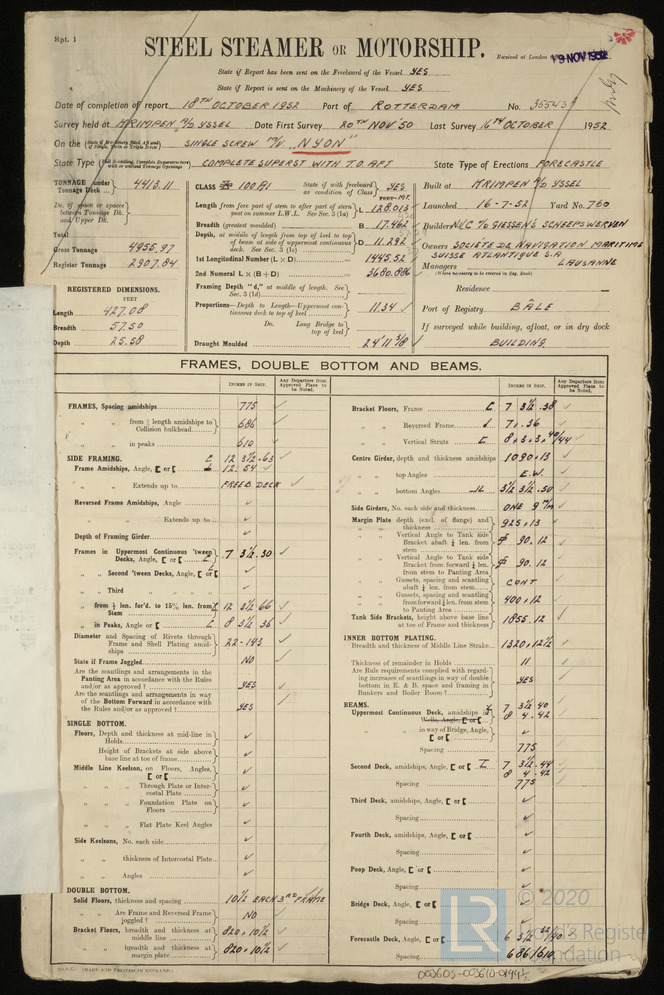 Rpt. 1
STEEL STEAMER OR MOTORSHIP.
Received at London
19 NOV 1952
State if Report has been sent on the Freeboard of the Vessel YES
State if Report is sent on the Machinery of the Vessel YES
Date of completion of report 18TH OCTOBER 1952 Port of ROTTERDAM No. 35543
Survey held at KRIMPEN A/D YSSEL Date First Survey 20TH NOV 50 Last Survey 16TH OCTOBER 1952
On the SINGLE SCREW M/V "NYON"
State Type COMPLETE SUPERST WITH T.O. AFT State Type of Erections FORECASTLE
TONNAGE under Tonnage Deck 4413.11
Do. of space or spaces between Tonnage Dk. and Upper Dk.
Total
Gross Tonnage 4955.97
Register Tonnage 2907.84
REGISTERED DIMENSIONS.
FEET
Length 427.08
Breadth 57.50
Depth 25.58
CLASS 100 A1 State if with freeboard as condition of Class YES
Length from fore part of stem to after part of stern post on summer L.W.L. See Sec. 3 (1a) L 128.013
Breadth (greatest moulded) B 17.462
Depth, at middle of length from top of keel to top of beam at side of uppermost continuous deck. See Sec. 3 (1c) D 11.292
1st Longitudinal Number (L × D) 1445.52
2nd Numeral L × (B + D) 3680.886
Framing Depth "d," at middle of length. See Sec. 3 (1d)
Proportions—Depth to Length—Uppermost continuous deck to top of keel 11.34
Do. Long Bridge to top of keel
Draught Moulded 24' 11 3/8
Built at KRIMPEN A/D YSSEL
Launched 16-7-52 Yard No. 760
Builders N.V. C/V GIESSEN'S SCHEEPSWERVEN
Owners SOCIÉTÉ DE NAVIGATION MARITIME
SUISSE ATLANTIQUE S.A.
Managers LAUSANNE
(Where necessary to be entered in Reg. Book)
Residence
Port of Registry BÂLE
If surveyed while building, afloat, or in dry dock
BUILDING
FRAMES, DOUBLE BOTTOM AND BEAMS.
INCHES IN SHIP. Any Departure from Approved Plans to be Noted.
FRAMES, Spacing amidships 775
" " from ½ length amidships to Collision bulkhead 686
" " in peaks 610
SIDE FRAMING.
Frame Amidships, Angle, [ or [ 12 3½ .63
12 .54
" " Extends up to FREEB. DECK
Reversed Frame Amidships, Angle
" " Extends up to
Depth of Framing Girder
Frames in Uppermost Continuous 'tween Decks, Angle, [ or [ 7 3½ .30
" " Second 'tween Decks, Angle, [ or [
" " Third " "
" " from ½ len. for'd. to 15% len. from Stem 12 3½ 66
" " in Peaks, Angle or [ 8 3½ 36
Diameter and Spacing of Rivets through Frame and Shell Plating amidships 22-143
State if Frame Joggled NO
Are the scantlings and arrangements in the Panting Area in accordance with the Rules and/or as approved? YES
Are the scantlings and arrangements in way of the Bottom Forward in accordance with the Rules and/or as approved? YES
SINGLE BOTTOM.
Floors, Depth and thickness at mid-line in Holds
Height of Brackets at side above base line at toe of frame
Middle Line Keelson, on Floors, Angles, [ or [
" " Through Plate or Intercostal Plate
" " Foundation Plate on Floors
" " Flat Plate Keel Angles
Side Keelsons, No. each side
" " thickness of Intercostal Plate
" " Angles
DOUBLE BOTTOM.
Solid Floors, thickness and spacing 10½ EACH 3RD FRAME
" " Are Frame and Reversed Frame joggled? NO
Bracket Floors, breadth and thickness at middle line 820 × 10½
" " breadth and thickness at margin plate 820 × 10½
Bracket Floors, Frame 7 3½ .38
" " Reversed Frame 7 × .36
" " Vertical Struts 8 × 3 × 3 × 40/44
Centre Girder, depth and thickness amidships 1090 × 13
" " top Angles E.W.
" " bottom Angles 3½ 3½ .50
Side Girders, No. each side and thickness ONE 9 m/m
Margin Plate depth (excl. of flange) and thickness 925 × 13
" " Vertical Angle to Tank side Bracket abaft ¼ len. from stem 90. 12
" " Vertical Angle to Tank side Bracket from forward ¼ len. from stem to Panting Area 90. 12
" " Gussets, spacing and scantling abaft ¼ len. from stem CONT
" " Gussets, spacing and scantling from forward ¼ len. from stem to Panting Area 400 × 12
Tank Side Brackets, height above base line at toe of Frame and thickness 1855. 12
INNER BOTTOM PLATING.
Breadth and thickness of Middle Line Strake 1320 × 12½
Thickness of remainder in Holds 11
Are Rule requirements complied with regarding increases of scantlings in way of double bottom in E. & B. space and framing in Bunkers and Boiler Room? YES
BEAMS.
Uppermost Continuous Deck, amidships in Wells, Angle, [ or [ 7 3½ 40
8 4 .42
" " in way of Bridge, Angle, [ or [
Spacing 775
Second Deck, amidships, Angle, [ or [ 7 3½ .44
8 4 .42
Spacing 775
Third Deck, amidships, Angle, [ or [
Spacing
Fourth Deck, amidships, Angle, [ or [
Spacing
Poop Deck, Angle, [ or [
Spacing
Bridge Deck, Angle, [ or [
Spacing
Forecastle Deck, Angle, [ or [ 6 3½
Spacing 686/610
(MADE AND PRINTED IN ENGLAND.)
002605-002610-0194
LR
© 2020
Lloyd's Register
Foundation